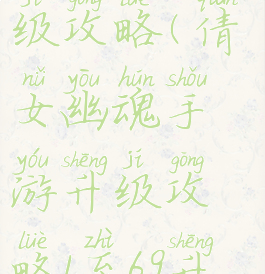 jí gōng lüè qiàn
级攻略(倩
nǚ yōu hún shǒu
女幽魂手
yóu shēng jí gōng
游升级攻
lüè zhì shēng
略1至69升